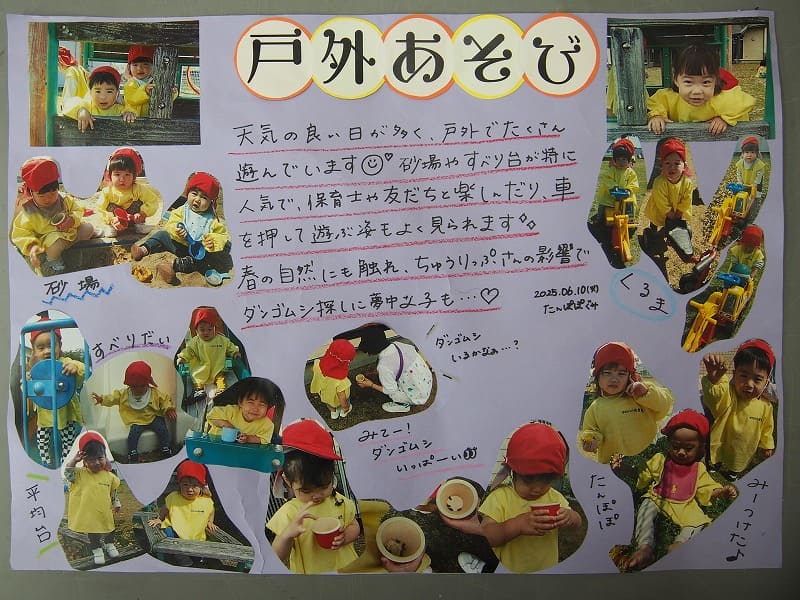 戸外あそび
天気の良い日が多く、戸外でたくさん
遊んでいます♡砂場やすべり台が特に
人気で、保育士や友だちと楽しんだり、車
を押して遊ぶ姿もよく見られます
春の自然にも触れ、ちゅうりっぷさんの影響で
ダンゴムシ探しに夢中な子も…♡
2025.06.10(火)
たんぽぽぐみ
砂場
くるま
すべりだい
ダンゴムシ
いるかなぁ…?
みてー!
ダンゴムシ
いっぱーい
平均台
たんぽぽ
みーつけた♪